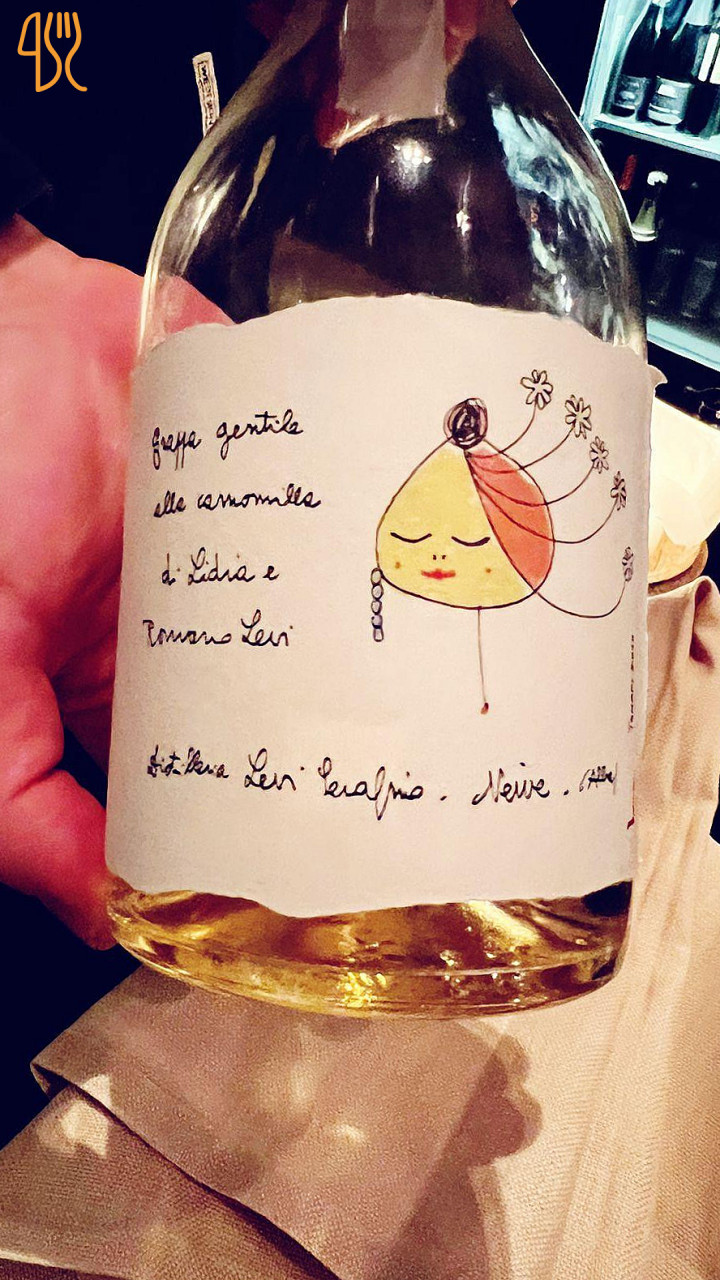 grappa gentile
alla camomilla
di Lidia e
Romano Levi
Distilleria Levi Serafino . Neive .